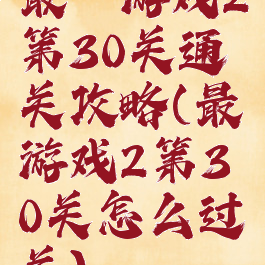 最一游戏2
第30关通
关攻略(最
游戏2第3
0关怎么过
关)